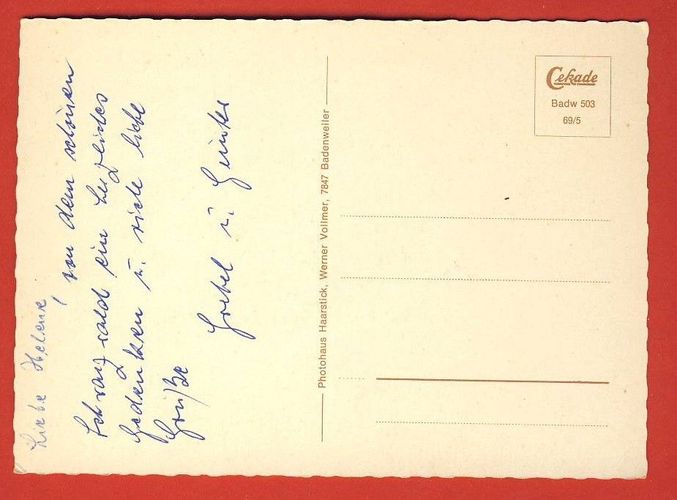 Liebe Helene,
von dem schönen
Schwarzwald ein herzliches
Gedenken u. viele liebe
Grüße
u. Günter
Photohaus Haarstick, Werner Vollmer, 7847 Badenweiler
Cekade
Badw 503
69/5